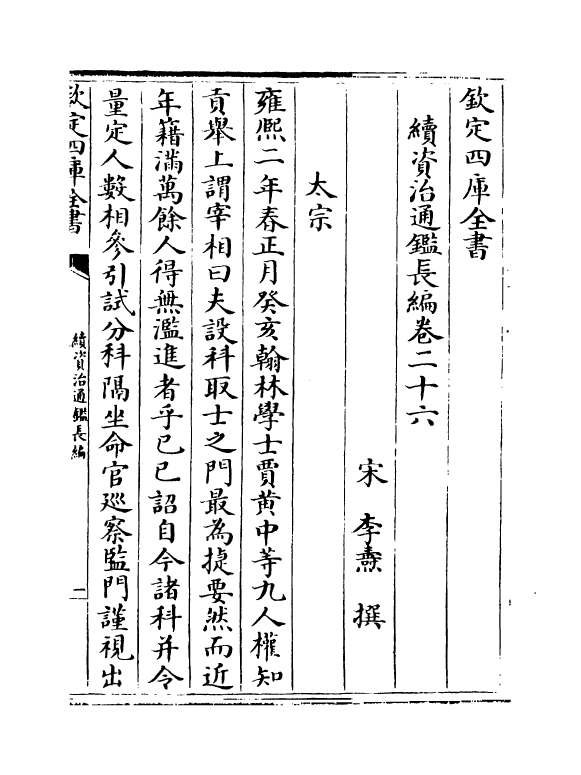 欽定四庫全書
續資治通鑑長編卷二十六
宋 李燾 撰
太宗
雍熙二年春正月癸亥翰林學士賈黃中等九人權知
貢舉上謂宰相曰夫設科取士之門最為捷要然而近
年籍滿萬餘人得無濫進者乎已已詔自今諸科并令
量定人數相參引試分科隔坐命官廵察監門謹視出
欽定四庫全書
續資治通鑑長編